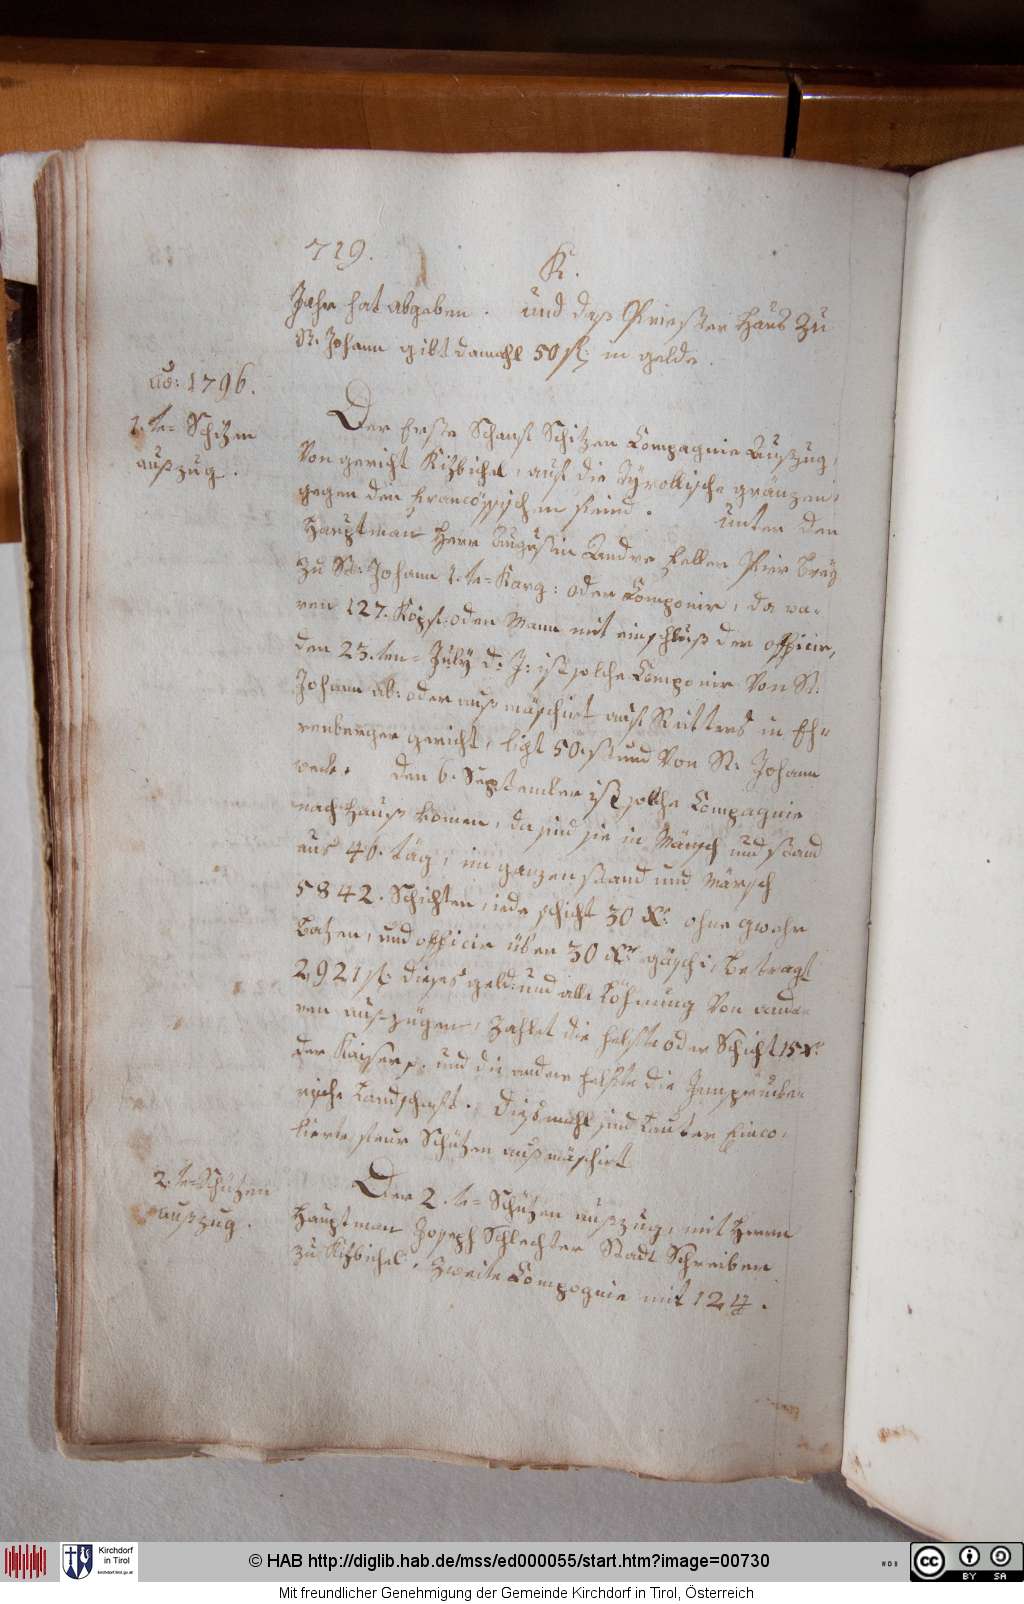 719.
K.
Jahr hat abgeben. und deß Priester Hauß zu
St: Johann gibt damahl 50 fl: in gelde.
ao: 1796.
1.te= Schitzen
außzug.
Der Erste Schanf Schitzen Compagnie Außzug,
Von gericht Kizbichel, auf die Tÿrollische gränzen,
gegen den francösischen feind. unter den
Hauptman Herr Augustin Andre feller Pier breÿ
zu St: Johann 1.te= Karg: oder Componie, da wa-
ren 127. Köpf: oder Mann mit einschluß der officir,
den 23.ten= Julÿ d: J: ist solche Componie Von St:
Johann ab: oder auß märschirt auf Rütters in Eh=
renberger gericht, ligt 50. stund Von St: Johann
weck. den 6. September ist solche Compagnie
nach Hauß komen, da sind sie in Märsch und stand
aus 46. täg, im ganzen stand und Märsch
5842. Schichten, iede schicht 30 Xr: ohne gwehr
Batzen, und officir über 30 Xr: gäsch, betragt
2921 fl: dieses geld: und alle Löhnung Von ande-
ren auszügen, Zahlet die helfte oder Schicht 15 Xr:
der Kaiser, und die andere helfte die Innsprucke-
rische Landschaft. dies mahl sind lauter Einco-
lierte steur Schützen auß märschirt
2.te= Schützen
außzug.
Der 2.te= Schützen außzug, mit Herrn
Hauptman Joseph Schlechter Stadt Schreiber
zu Kizbichel, Zweite Compognie mit 124.
Kirchdorf
in Tirol
kirchdorf.tirol.gv.at
© HAB http://diglib.hab.de/mss/ed000055/start.htm?image=00730
WDB
cc BY SA
Mit freundlicher Genehmigung der Gemeinde Kirchdorf in Tirol, Österreich